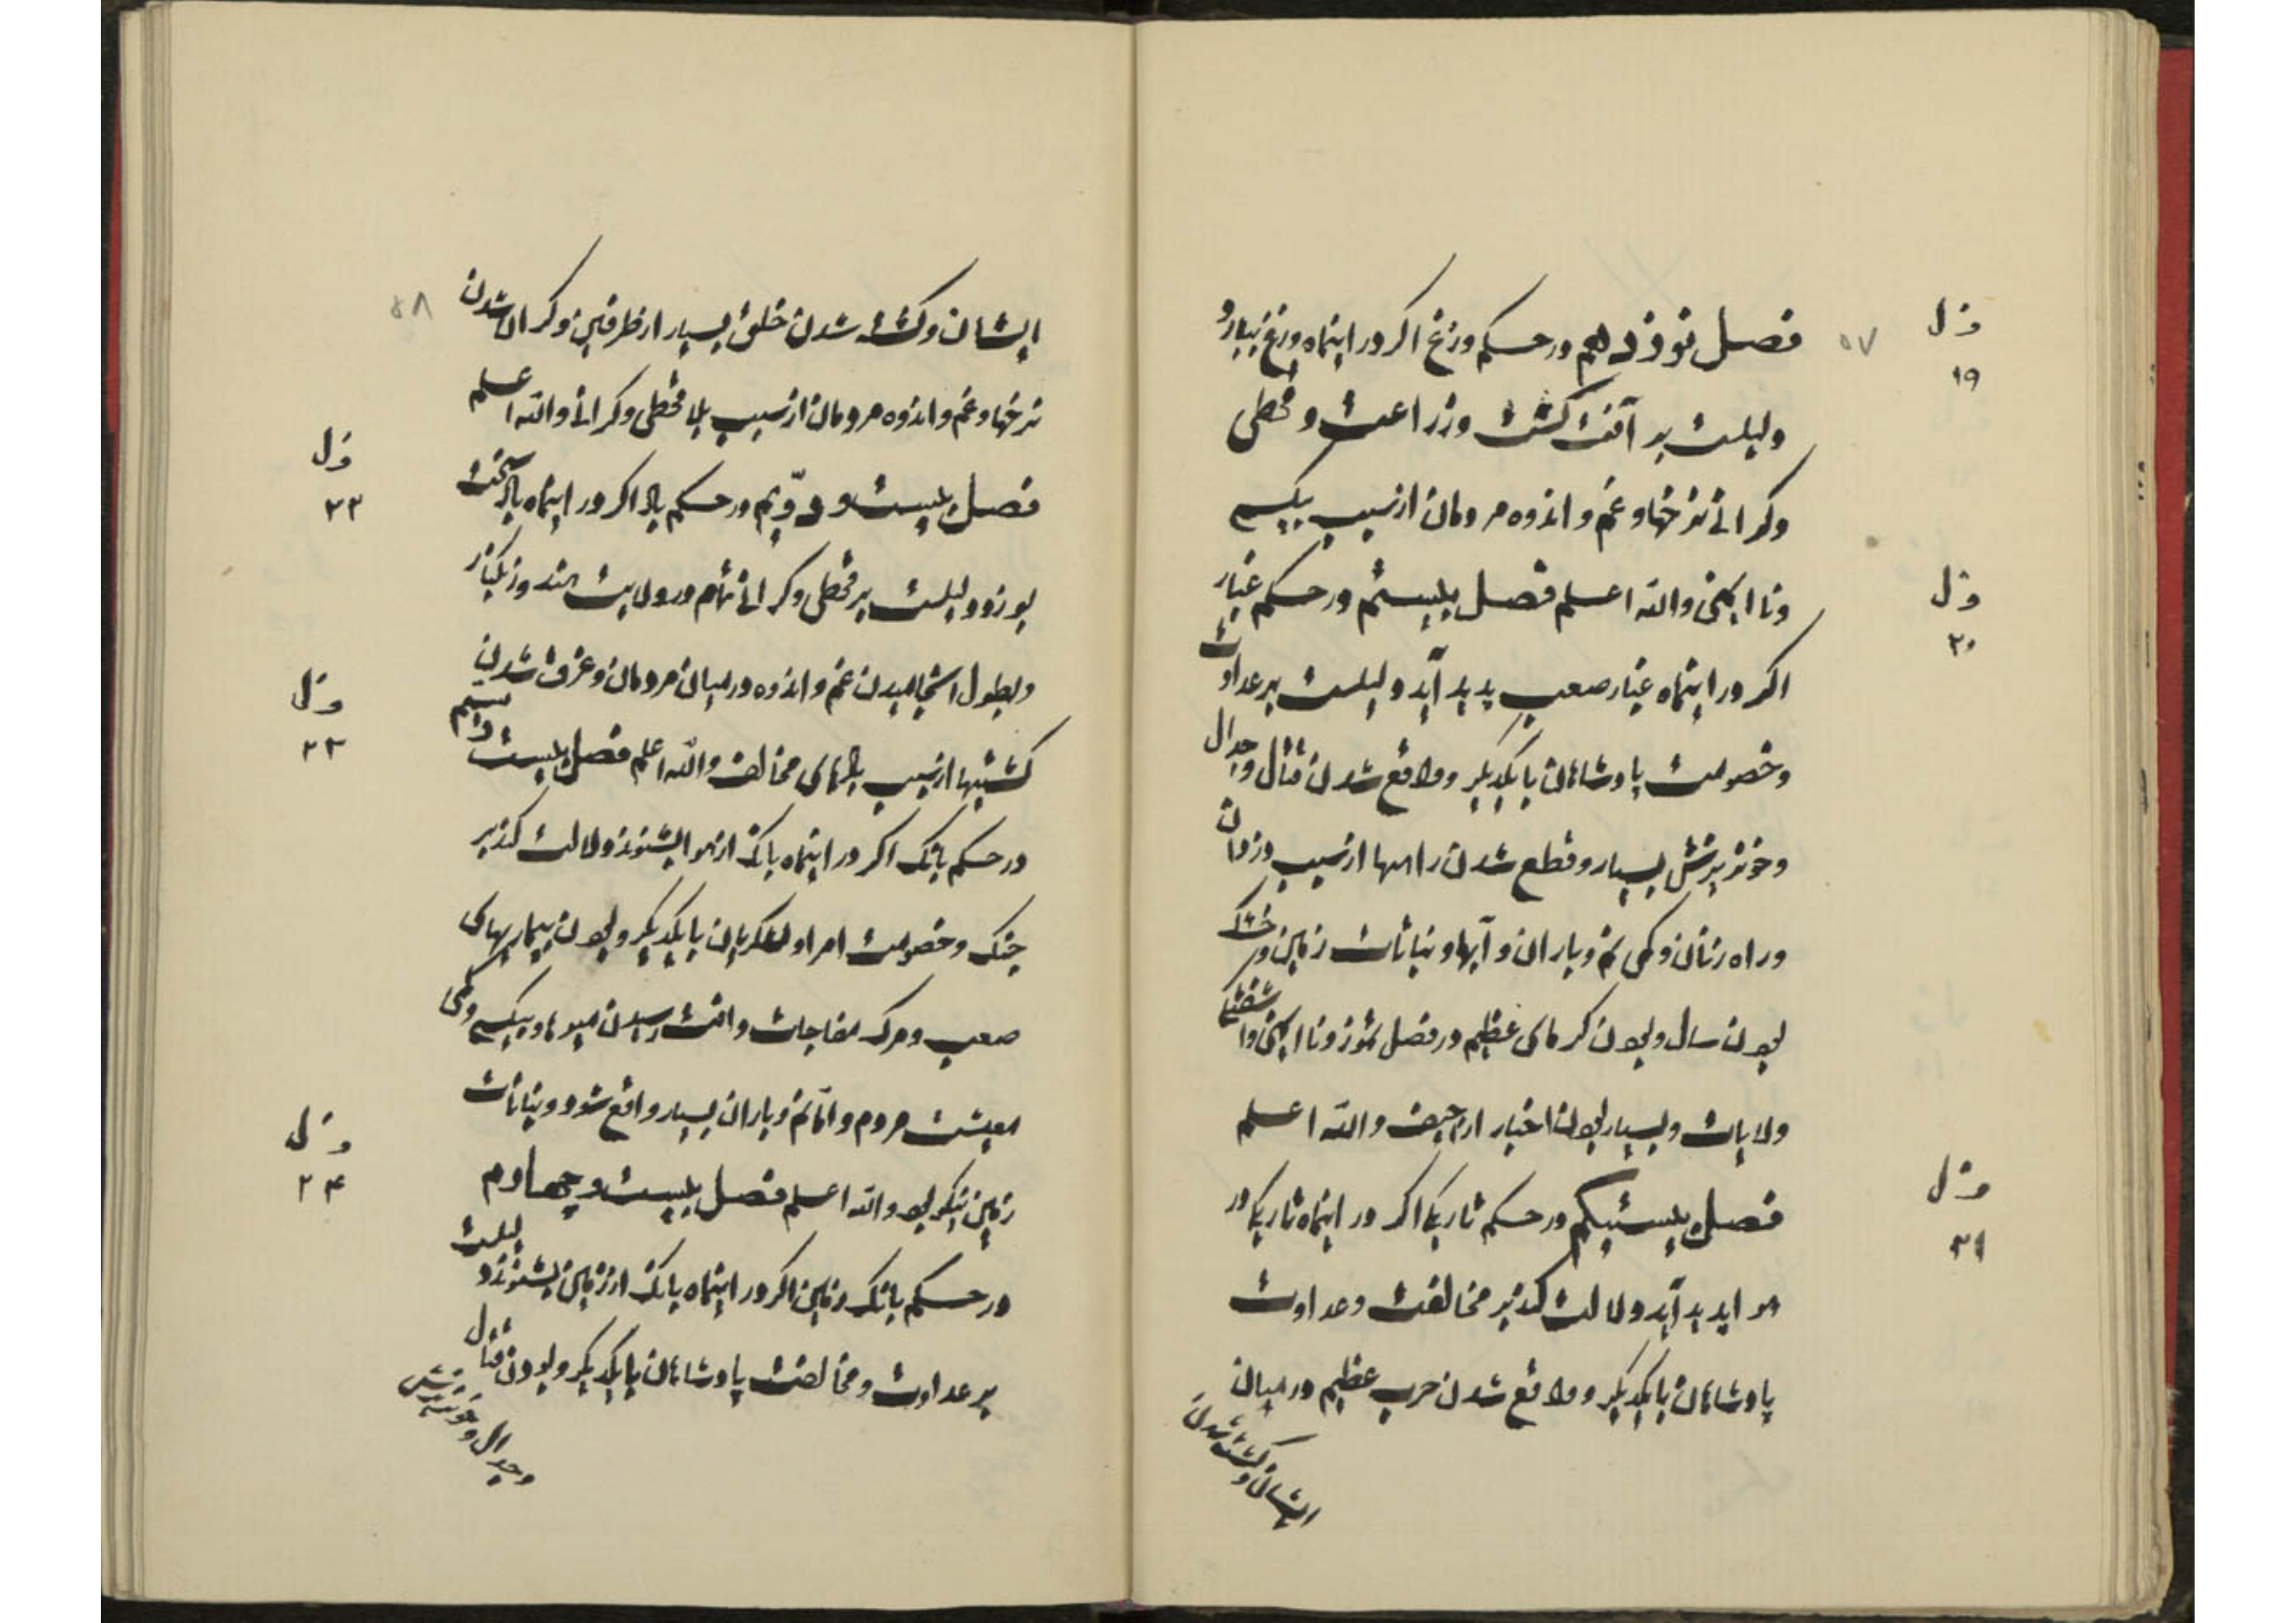 ۵۷
فصل نوزدهم در حکم وزغ اکر در اینماه وزغ بسیار و
دلیلست بر آفت کشت و زراعت و قحطی
و کرانی نرخها و غم و اندوه مردمان از سبب بیکسبی
و نا ایمنی والله اعلم فصل بیستم در حکم غبار
اکر در اینماه غبار صعب پدید آید دلیلست بر عداوت
و خصومت پادشاهان با یکدیکر و واقع شدن قتال و جدال
و خونریزش بسیار و قطع شدن راهها از سبب دزدان
و راه زنان و کمی نم و باران و آبها و نباتات زمین و خشک
بودن سال و بودن کرمای عظیم در فصل تموز و نا ایمنی و
ولایات و بسیار بودن اخبار اراجیف والله اعلم
فصل بیستیکم در حکم تاریکی اکر در اینماه تاریکی در
هوا پدید آید دلالت کند بر مخالفت و عداوت
پادشاهان با یکدیکر و واقع شدن حرب عظیم در میان
ایشان و کشته شدن
ف ل
۱۹
ف ل
۲۰
ف ل
۲۱
۵۸
ایشان و کشته شدن خلق بسیار از طرفین و کران شدن
نرخها و غم و اندوه مردمان از سبب بلا قحطی و کرانی والله اعلم
فصل بیست و دوّیم در حکم باد اکر در اینماه باد سخت
بوزد دلیلست بر قحطی و کرانی تمام در ولایت هند و زنکبار
و بطول انجامیدن غم و اندوه در میان مردمان و غرق شدن
کشتیها از سبب بادهای مخالف والله اعلم فصل بیست و سیم
در حکم بانک اکر در اینماه بانک از هوا بشنوند دلالت کند بر
جنک و خصومت امرا و لشکریان با یکدیکر و بودن بیماریهای
صعب و مرک مفاجات و آفت رسیدن میوها و بیکسبی و کمی
معیشت مردم و امّا نم و باران بسیار واقع شود و نباتات
زمین نیکو بود والله اعلم فصل بیست و چهارم
در حکم بانک زمین اکر در اینماه بانک از زمین بشنوند دلیلست
بر عداوت و مخالفت پادشاهان با یکدیکر و بودن قتال
و جدال و خونریزش
ف ل
۲۲
ف ل
۲۳
ف ل
۲۴